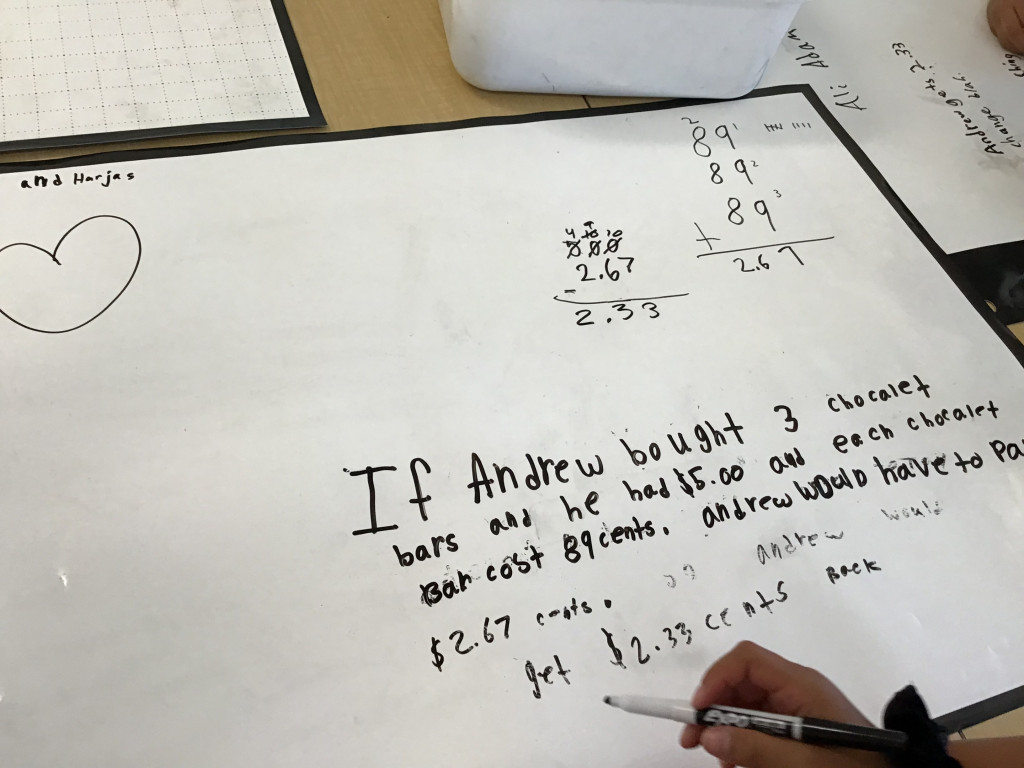 and Harjas
2
89 1
89 2
89 3
+
2.67
4 10
000
2.67
-
2.33
If Andrew bought 3 chocalet
bars and he had $5.00 and each chocalet
Bar cost 89 cents. andrew would have to Pa
$2.67 cents. so andrew would
get $2.33 cents Back
Ali Adam
Andrew gets 2.33
change back
EXPO